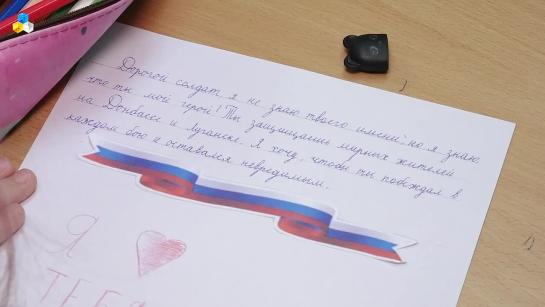 Дорогой солдат я не знаю твоего имени, но я знаю
что ты мой герой! Ты защищаешь мирных жителей
на Донбасе и Луганске. Я хочу, чтобы ты побеждал в
каждом бою и оставался невредимым.
Я
ТЕБЯ